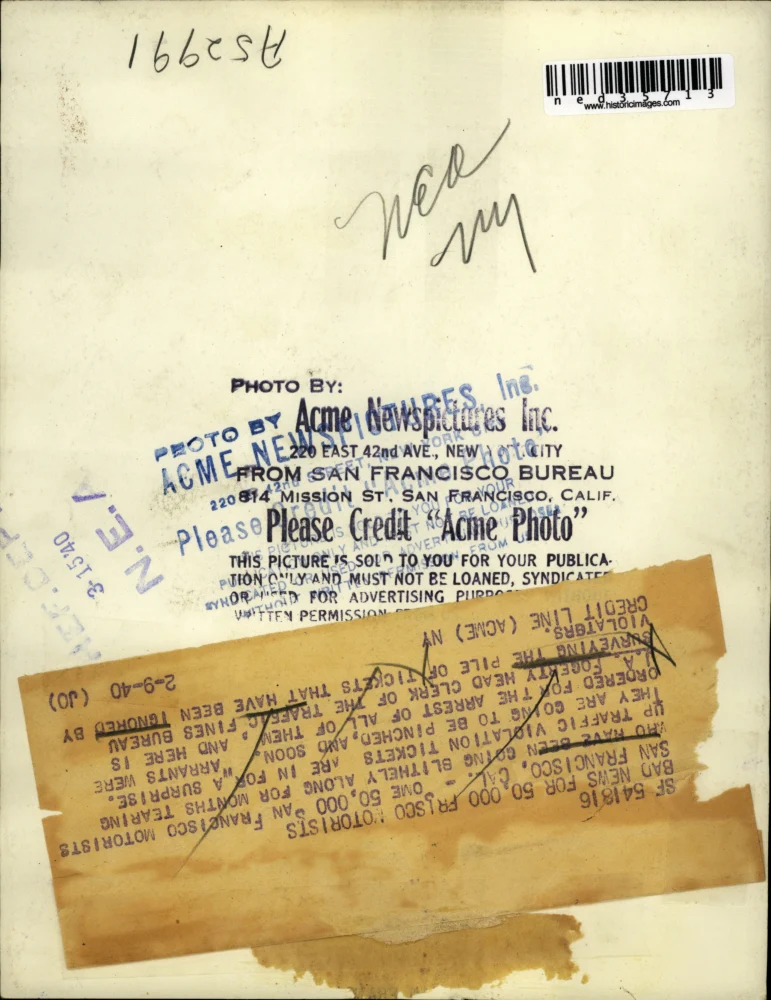 AS2991
ned35713
www.historicimages.com
NEA
NY
PHOTO BY:
Acme Newspictures Inc.
220 EAST 42nd AVE., NEW CITY
FROM SAN FRANCISCO BUREAU
814 MISSION ST., SAN FRANCISCO, CALIF.
Please Credit "Acme Photo"
THIS PICTURE IS SOLD TO YOU FOR YOUR PUBLICA-
TION ONLY AND MUST NOT BE LOANED, SYNDICATE
OR USED FOR ADVERTISING PURPO
WRITTEN PERMISSION
PHOTO BY
ACME NEWSPICTURES, Inc.
220 E. 42nd STREET, NEW YORK
Please Credit "Acme Photo"
N.E.A
3-15-40
REF. DEP
SF 541816
BAD NEWS FOR 50,000 FRISCO MOTORISTS
SAN FRANCISCO, CAL. - SOME 50,000 SAN FRANCISCO MOTORISTS
WHO HAVE BEEN GOING BLITHELY ALONG FOR MONTHS TEARING
UP TRAFFIC VIOLATION TICKETS ARE IN FOR A SURPRISE.
THEY ARE GOING TO BE PINCHED, AND SOON. "WARRANTS WERE
ORDERED FOR THE ARREST OF ALL OF THEM," AND HERE IS
L.A. FOGERTY HEAD CLERK OF THE TRAFFIC FINES BUREAU
SURVEYING THE PILE OF TICKETS THAT HAVE BEEN IGNORED BY
VIOLATERS.
CREDIT LINE (ACME) NY 2-9-40 (JO)